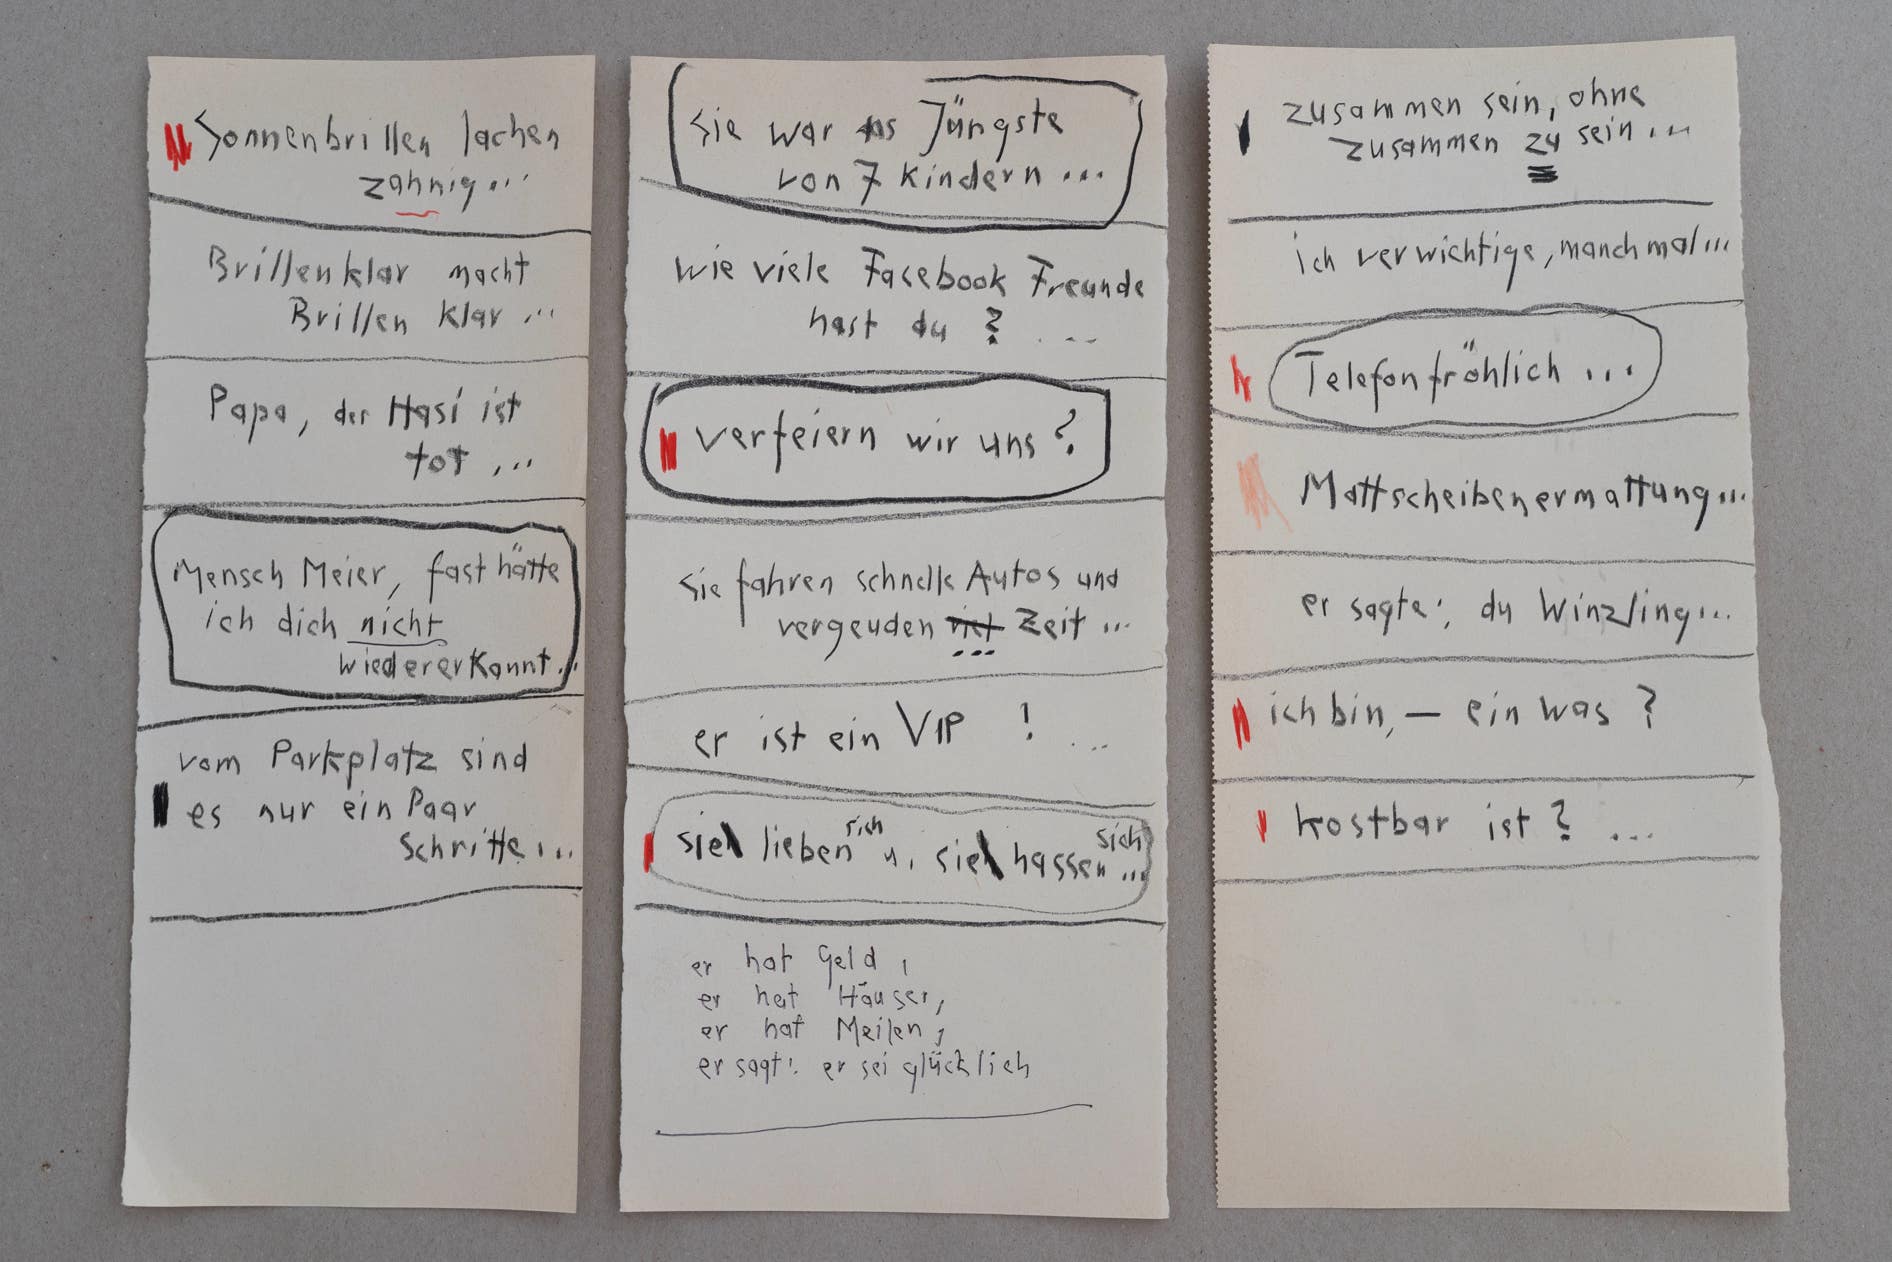 Sonnenbrillen lachen
zahnig...
Brillenklar macht
Brillen klar...
Papa, der Hasi ist
tot...
Mensch Meier, fast hätte
ich dich nicht
wiedererkannt...
vom Parkplatz sind
es nur ein Paar
Schritte...
Sie war als Jüngste
von 7 Kindern...
Wie viele Facebook Freunde
hast du? ...
verfeiern wir uns?
Sie fahren schnelle Autos und
vergeuden viel Zeit...
er ist ein VIP! ...
sie lieben sich u. sie hassen sich...
er hat Geld,
er hat Häuser,
er hat Meilen,
er sagt: er sei glücklich
zusammen sein, ohne
zusammen zu sein...
ich verwichtige, manchmal...
Telefonfröhlich...
Mattscheibenermattung...
er sagte: du Winzling...
ich bin, – ein was?
kostbar ist? ...